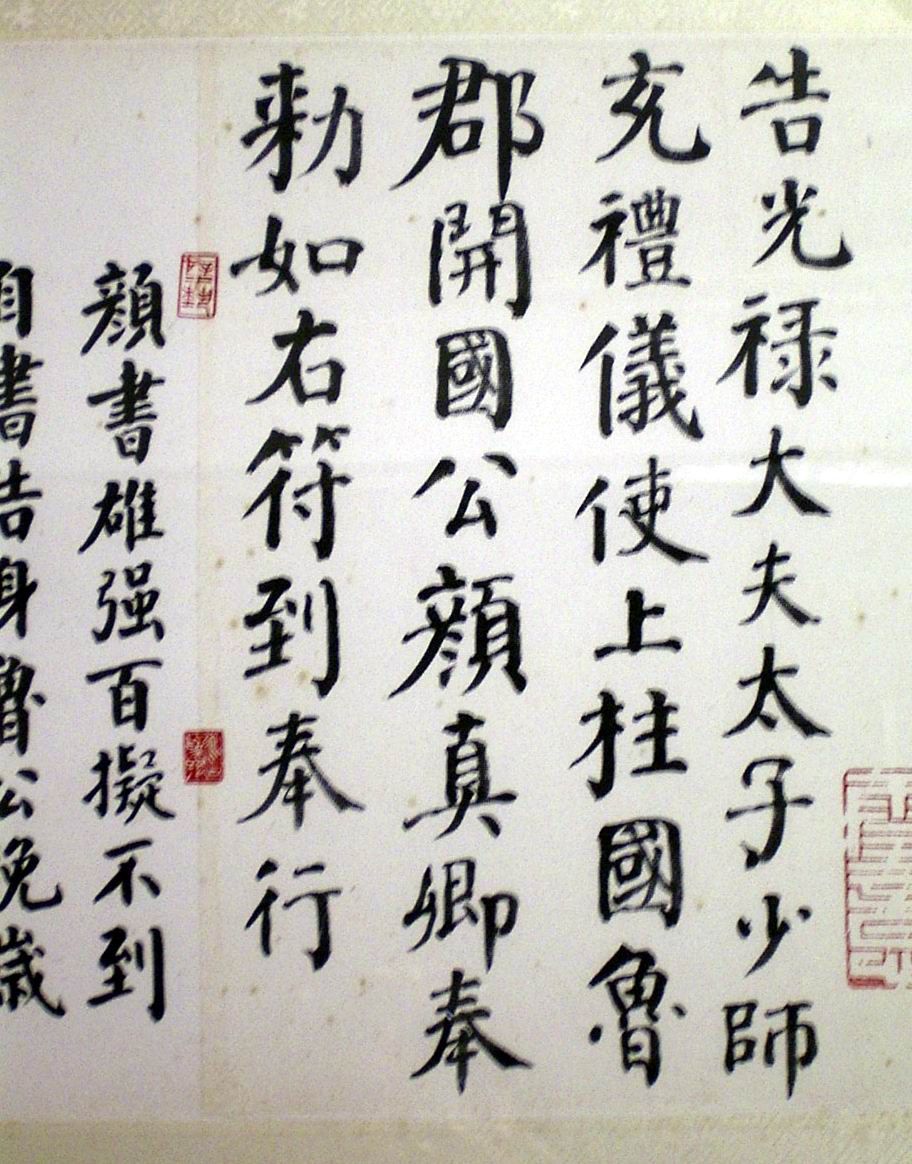 告光禄大夫太子少師
充禮儀使上柱國魯
郡開國公顔真卿奉
勑如右符到奉行
顔書雄强百擬不到
自書告身魯公晚歲